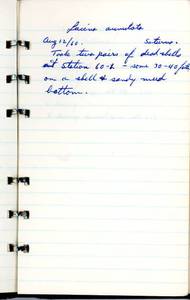 Lucina annulata
Aug 12/60. Saturna.
Took two pairs of dead shells
at Station 60-2 - some 30-40
on a shell & sandy mud
bottom.